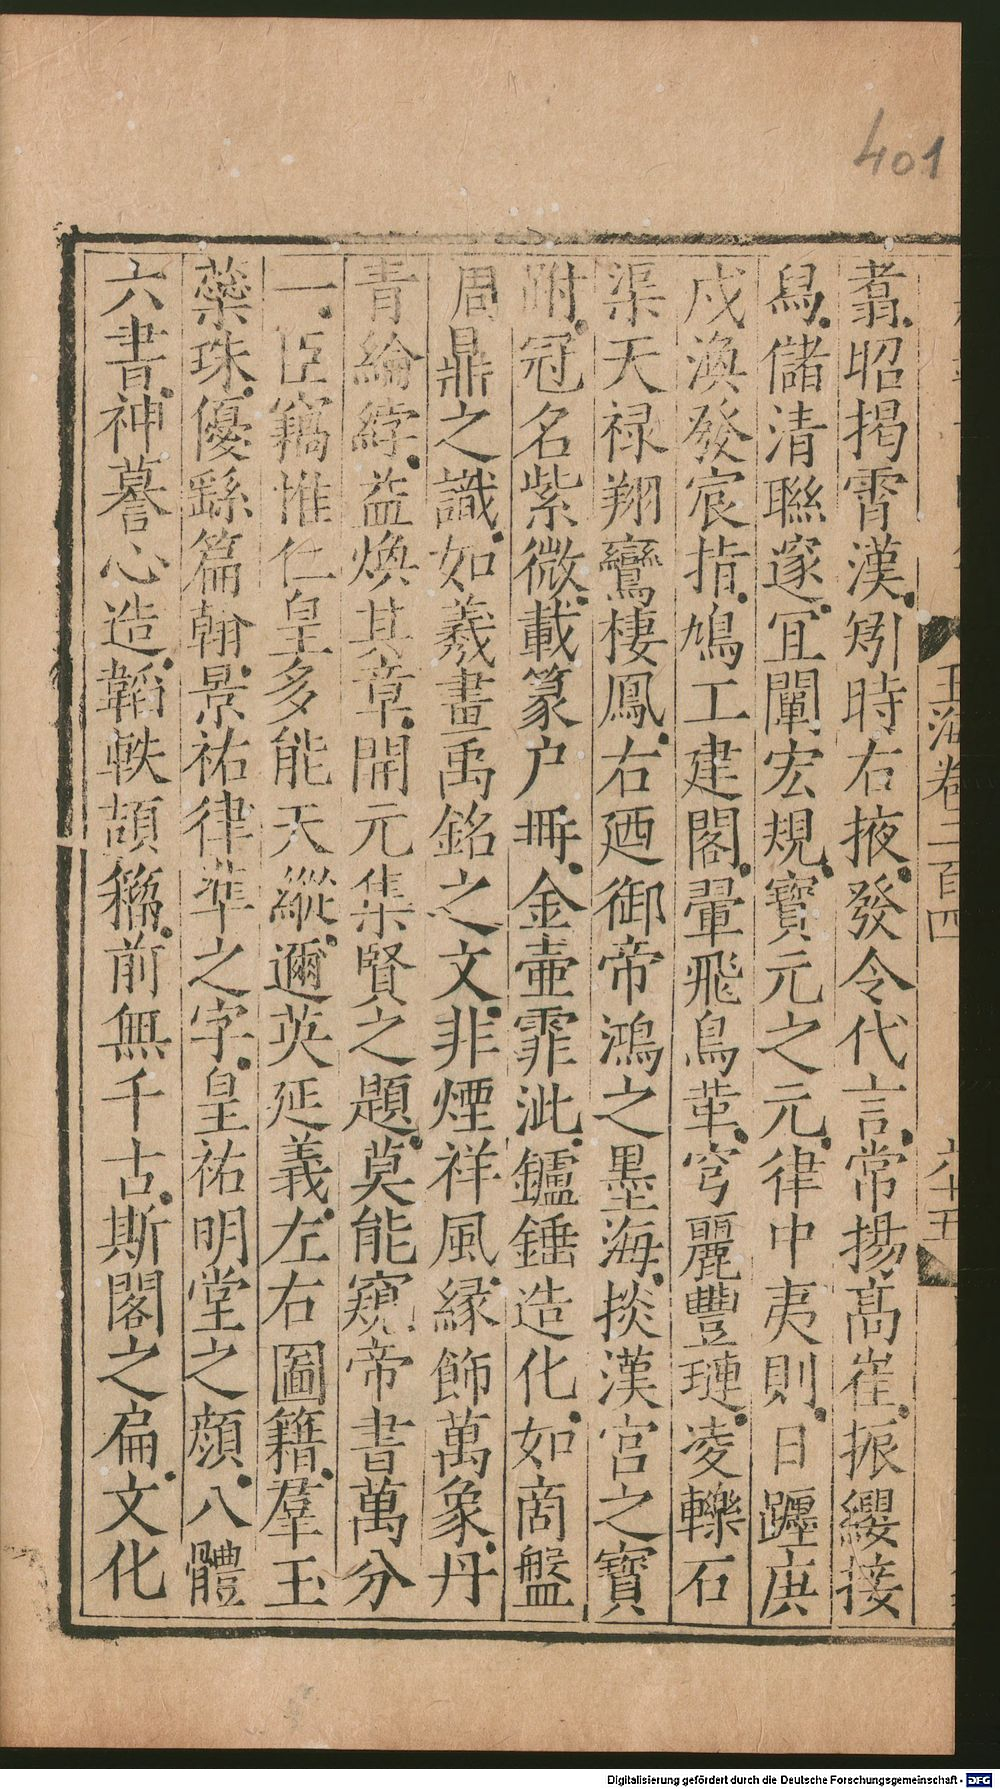 401
玉海卷二百四
六十五
翥昭掲霄漢矧時右掖發令代言常揚髙崔振纓接
舄儲清聯邃宜闡宏規寶元之元律中夷則日躔庚
戌渙發宸指鳩工建閣翬飛鳥革穹麗豐璉凌轢石
渠天禄翔鸞棲鳳右廼御帝鴻之墨海掞漢宮之寶
跗冠名紫微載篆户冊金壷霏泚鑪錘造化如商盤
周鼎之識如羲畫禹銘之文非煙祥風縁飾萬象丹
青綸綍益煥其章開元集賢之題莫能窺帝書萬分
一臣竊惟仁皇多能天縱邇英延義左右圖籍羣玉
蘂珠優繇篇翰景祐律準之字皇祐明堂之顔八體
六書神摹心造韜軼頡籕前無千古斯閣之扁文化
Digitalisierung gefördert durch die Deutsche Forschungsgemeinschaft - DFG